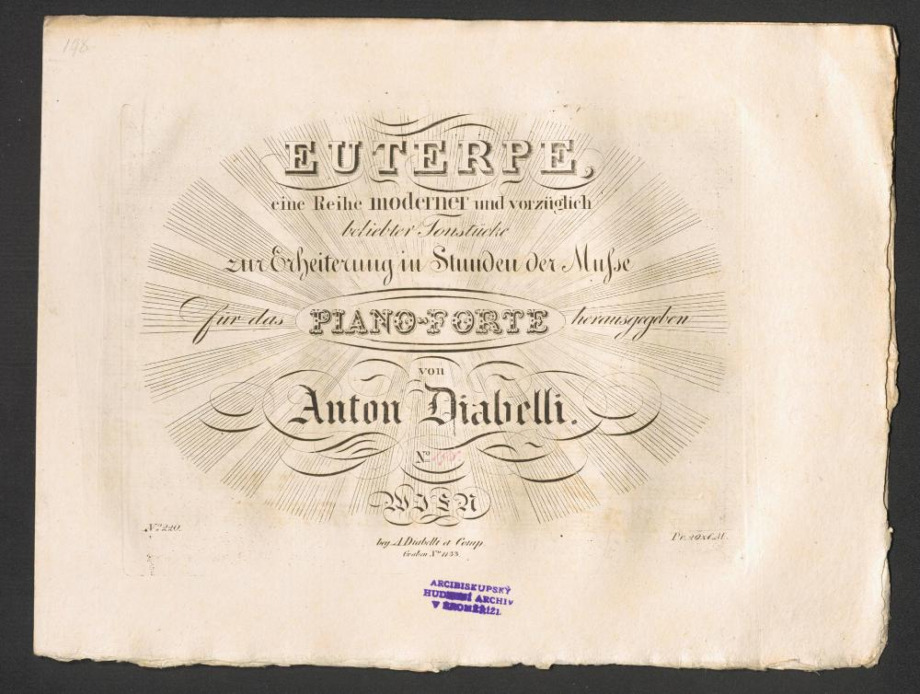 198
EUTERPE,
eine Reihe moderner und vorzüglich
beliebter Tonstücke
zur Erheiterung in Stunden der Muſse
für das PIANO-FORTE herausgegeben
von
Anton Diabelli.
No
WIEN
No 220.
bey A. Diabelli et Comp.
Graben No 1133.
ARCIBISKUPSKÝ
HUDEBNÍ ARCHIV
V KROMĚŘÍŽI.